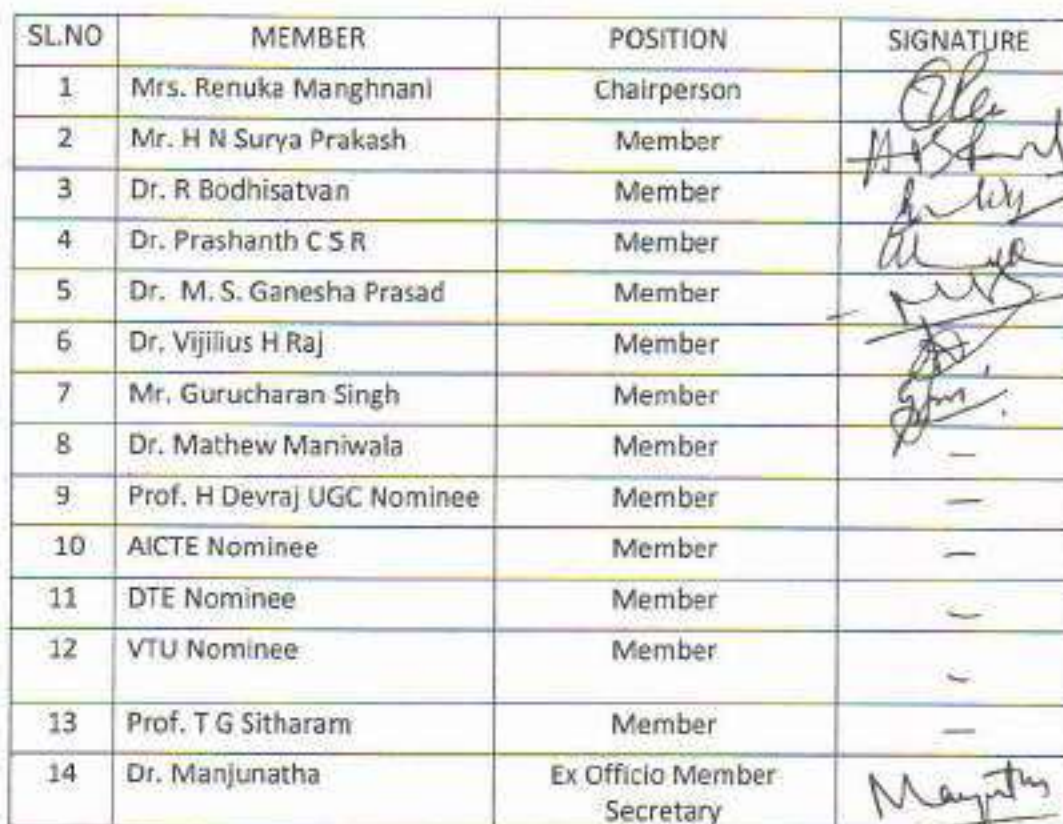 SL.NO MEMBER POSITION SIGNATURE
1 Mrs. Renuka Manghnani Chairperson
2 Mr. H N Surya Prakash Member
3 Dr. R Bodhisatvan Member
4 Dr. Prashanth C S R Member
5 Dr. M. S. Ganesha Prasad Member
6 Dr. Vijilius H Raj Member
7 Mr. Gurucharan Singh Member
8 Dr. Mathew Maniwala Member –
9 Prof. H Devraj UGC Nominee Member –
10 AICTE Nominee Member –
11 DTE Nominee Member –
12 VTU Nominee Member –
13 Prof. T G Sitharam Member –
14 Dr. Manjunatha Ex Officio Member
Secretary